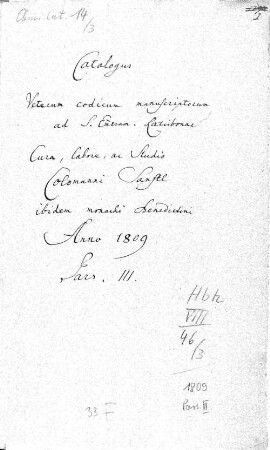 14/3
Catalogus
Veterum codicum manuscriptorum
ad S. Emeram. Ratisbonae
Cura, labore, ac Studio
Colomanni Sanftl
ibidem monachi Benedictini
Anno 1809
Pars. III.
Hbh
VIII
46
/3
1809
Pars II
33 F